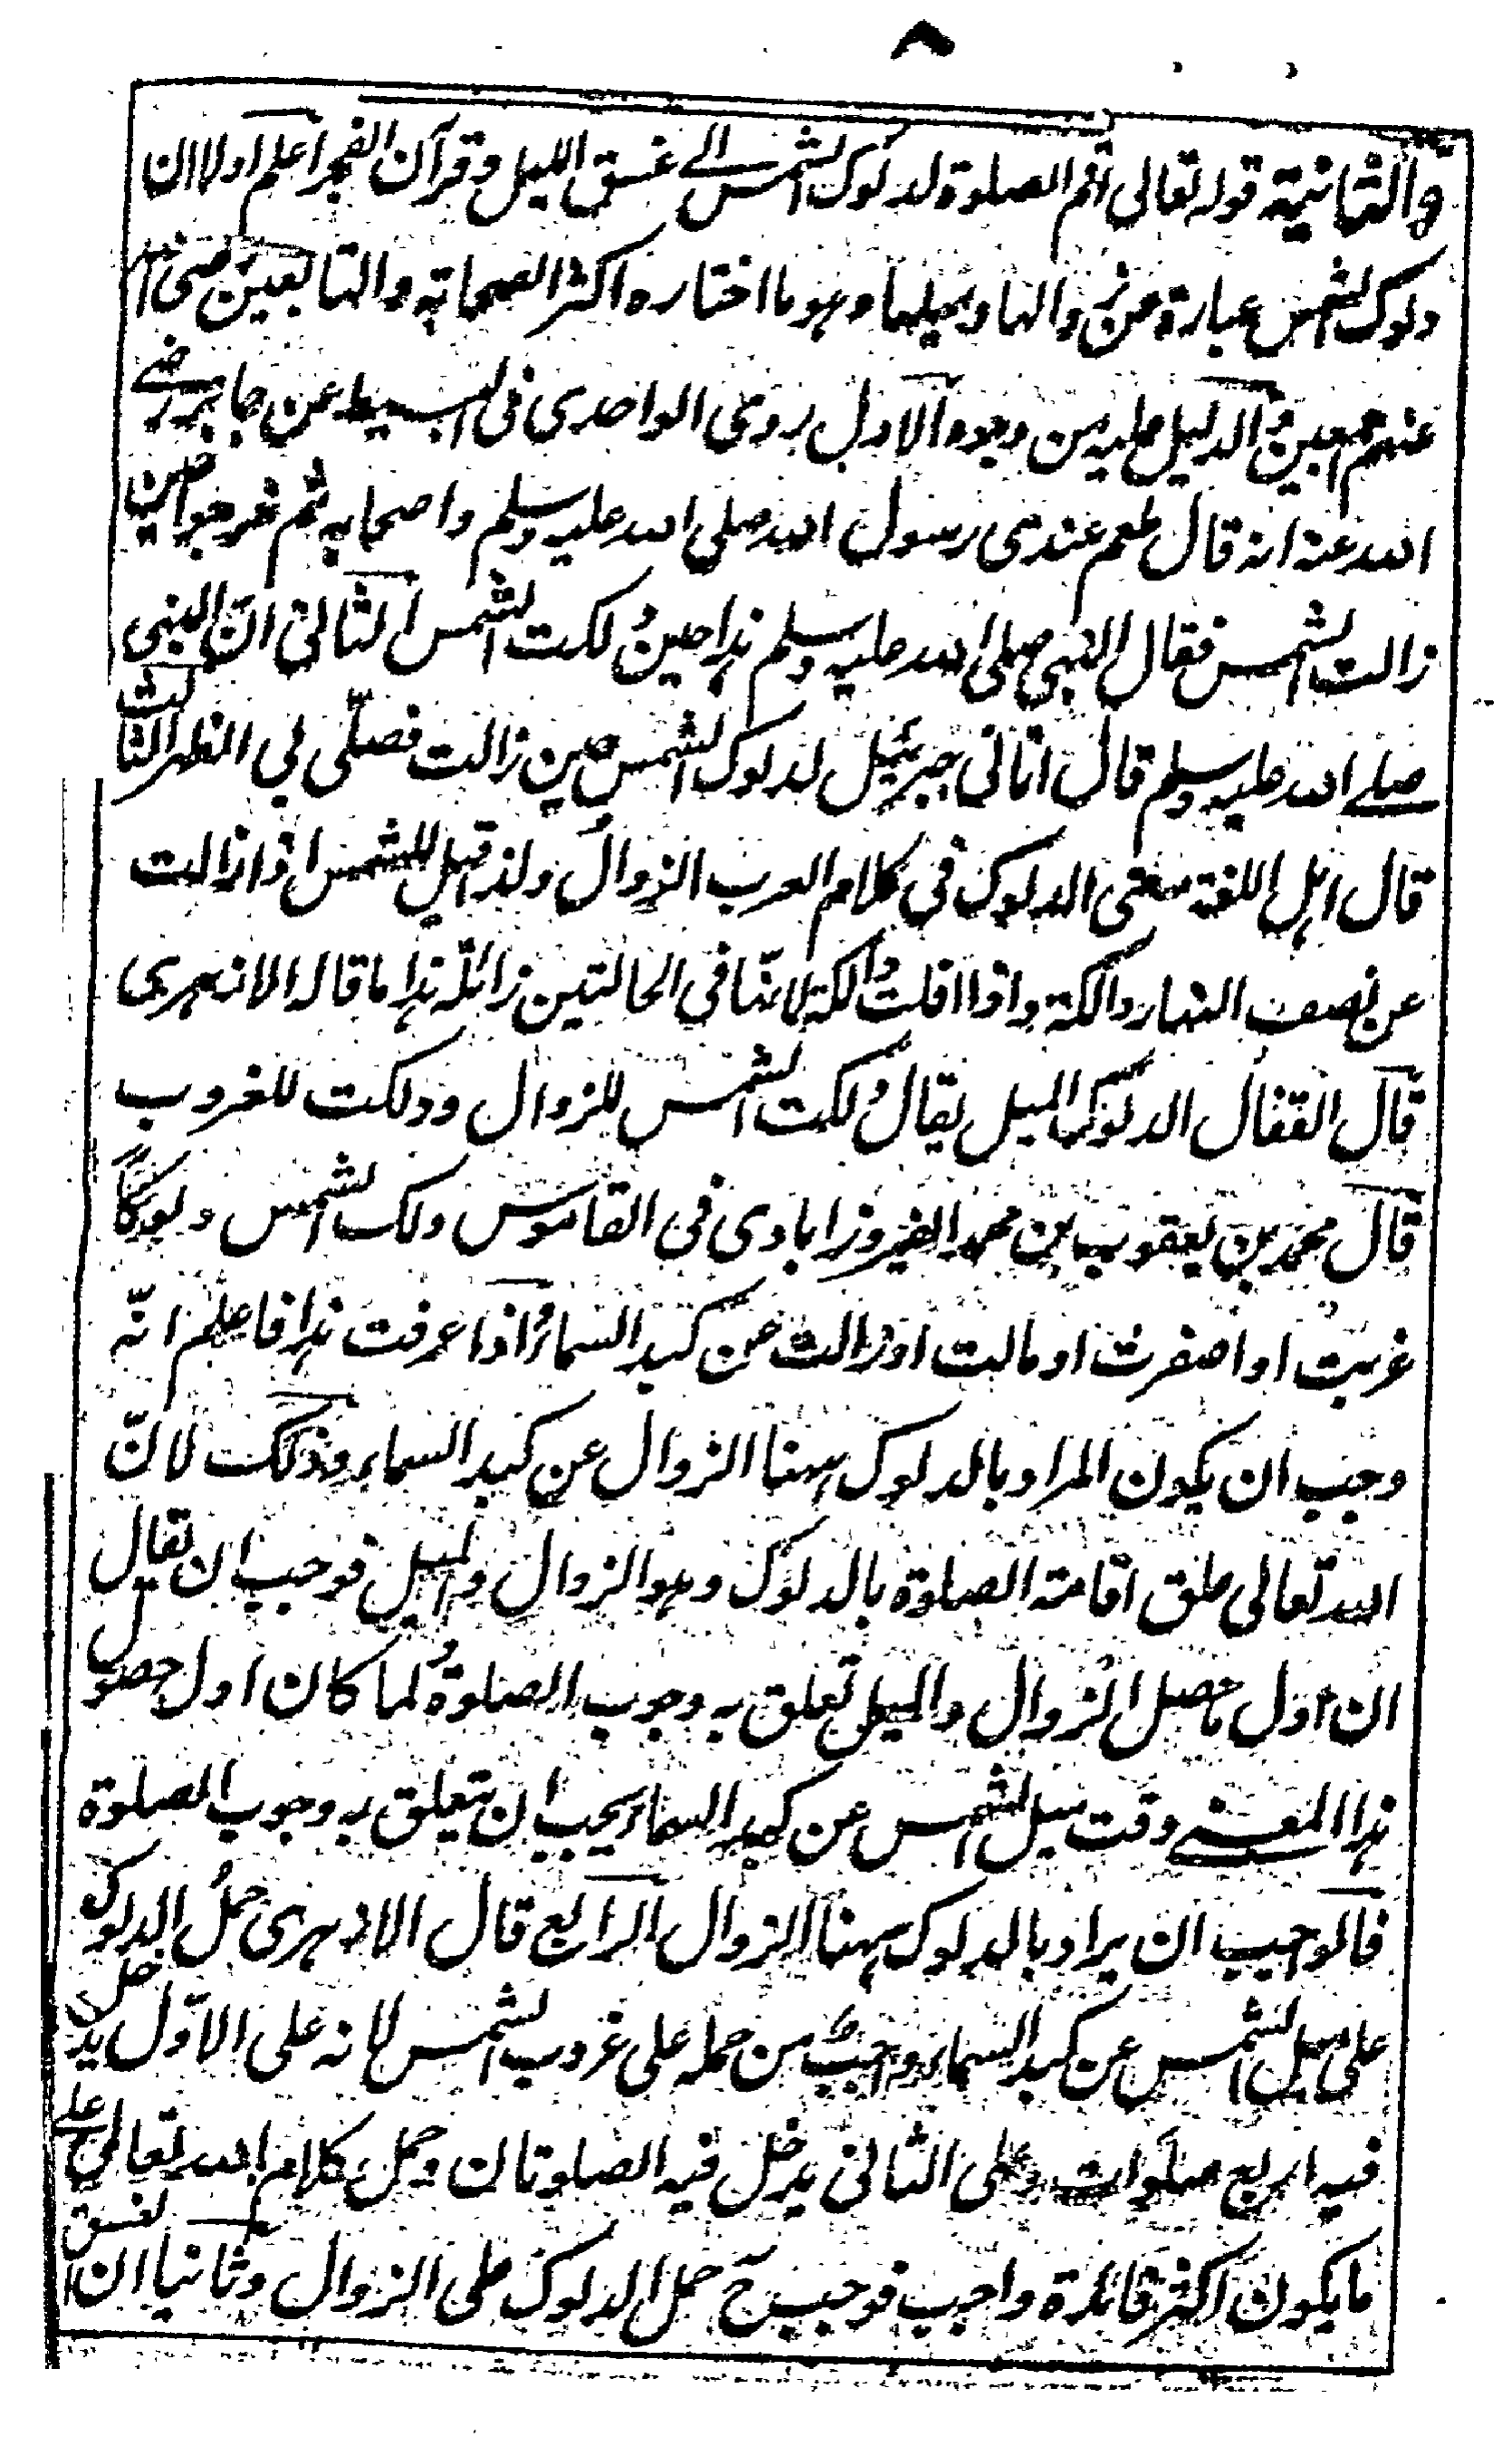 ۸
والثانية قوله تعالى اقم الصلوة لدلوك الشمس الى غسق الليل وقرآن الفجر اعلم اولا ان
دلوك الشمس عبارة عن زوالها وميلها وهو ما اختاره اكثر الصحابة والتابعين رضى الله
عنهم اجمعين والدليل عليه من وجوه الاول روى الواحدى فى البسيط عن جابر رضى
الله عنه انه قال طعم عندى رسول الله صلى الله عليه وسلم واصحابه ثم خرجوا حين
زالت الشمس فقال النبى صلى الله عليه وسلم هذا حين دلكت الشمس الثانى انّ النبى
صلى الله عليه وسلم قال اتانى جبرئيل لدلوك الشمس حين زالت فصلّى بى الظهر الثالث
قال اهل اللغة معنى الدلوك فى كلام العرب الزوال ولذا قيل للشمس اذا زالت
عن نصف النهار دالكة واذا افلت دالكة لانّها فى الحالتين زائلة هذا ما قاله الازهرى
قال القفال الدلوك الميل يقال دلكت الشمس للزوال ودلكت للغروب
قال محمد بن يعقوب بن محمد الفيروزابادى فى القاموس دلك الشمس دلوكاً
غربت او اصفرت او مالت او زالت عن كبد السماء اذا عرفت هذا فاعلم انّه
وجب ان يكون المراد بالدلوك ههنا الزوال عن كبد السماء وذلك لانّ
الله تعالى علق اقامة الصلوة بالدلوك وهو الزوال والميل فوجب ان يقال
ان اول ما حصل الزوال والميل تعلق به وجوب الصلوة فلما كان اول حصول
هذا المعنى وقت ميل الشمس عن كبد السماء يجب ان يتعلق به وجوب الصلوة
فالموجب ان يراد بالدلوك ههنا الزوال الرابع قال الازهرى حمل الدلوك
على ميل الشمس عن كبد السماء واجب من حمله على غروب الشمس لانه على الاوّل يدخل
فيه اربع صلوات وعلى الثانى يدخل فيه الصلوتان وحمل كلام الله تعالى على
ما يكون اكثر فائدة واجب فوجب ح حمل الدلوك على الزوال وثانيا ان الغسق